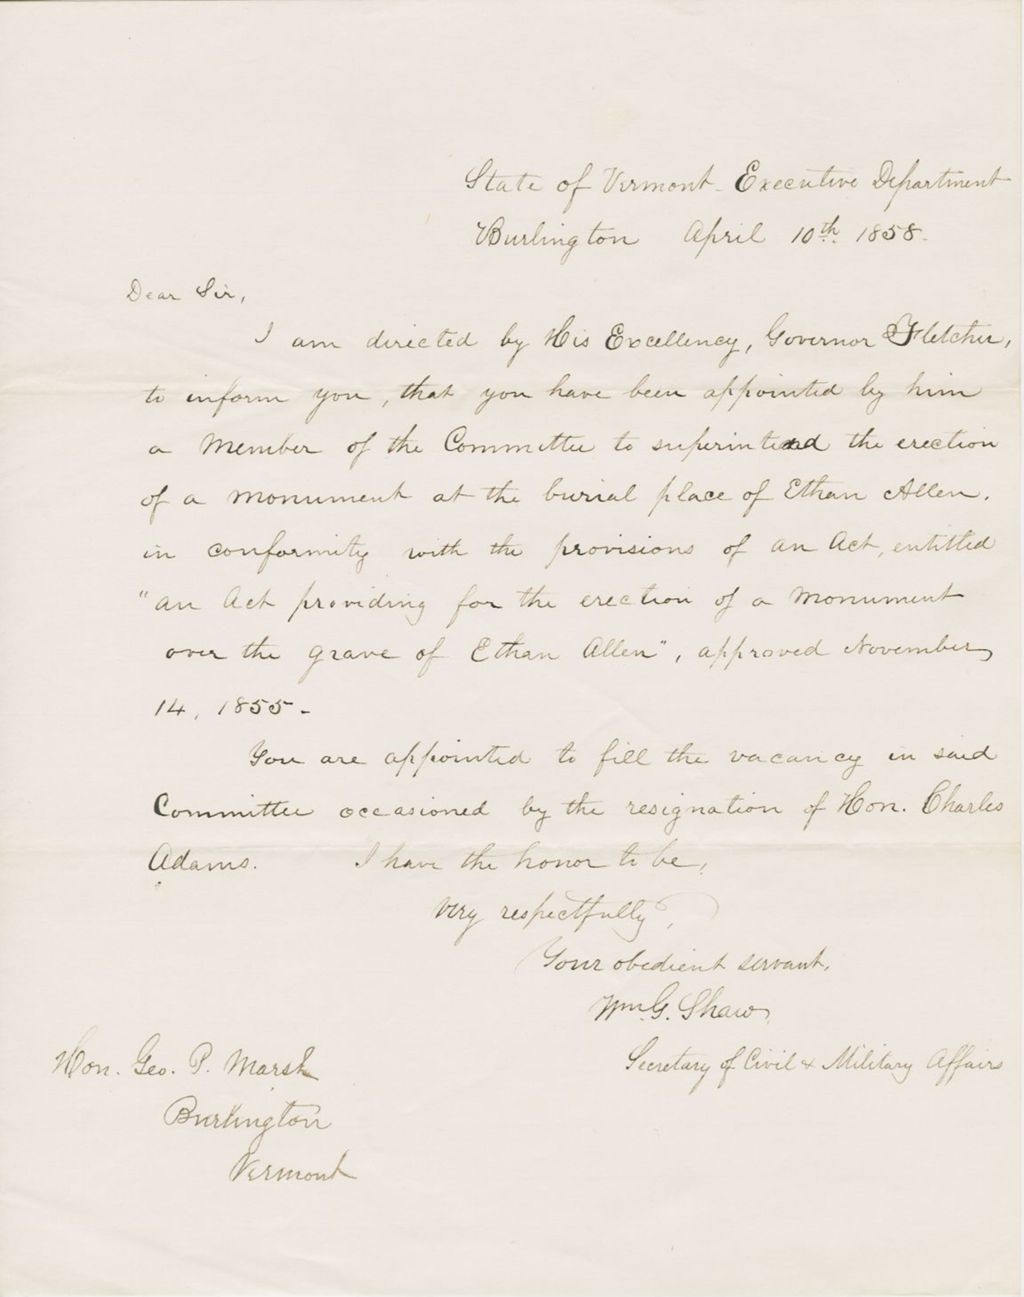 State of Vermont - Executive Department
Burlington April 10th. 1858.
Dear Sir,
I am directed by His Excellency, Governor Fletcher,
to inform you, that you have been appointed by him
a member of the Committee to superintend the erection
of a monument at the burial place of Ethan Allen.
in conformity with the provisions of an Act, entitled
"an Act providing for the erection of a Monument
over the grave of Ethan Allen", approved November
14, 1855-
You are appointed to fill the vacancy in said
Committee occasioned by the resignation of Hon. Charles
Adams. I have the honor to be,
Very respectfully,
Your obedient servant,
Wm. G. Shaw,
Secretary of Civil & Military Affairs
Hon. Geo. P. Marsh
Burlington
Vermont